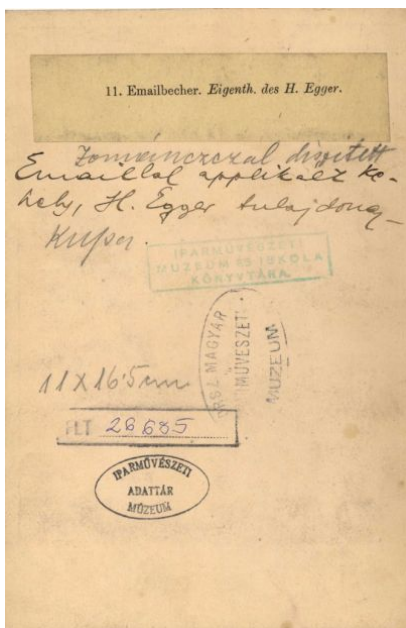 11. Emailbecher. Eigenth. des H. Egger.
Zománczczal díszített
Emaillal applikált ke-
hely, H. Egger tulajdona,
IPARMŰVÉSZETI
MUZEUM ÉS ISKOLA
KÖNYVTÁRA.
ORSZ. MAGYAR
IPARMŰVÉSZETI
MUZEUM
11 X 16·5 cm
FLT 26685
IPARMŰVÉSZETI
ADATTÁR
MÚZEUM